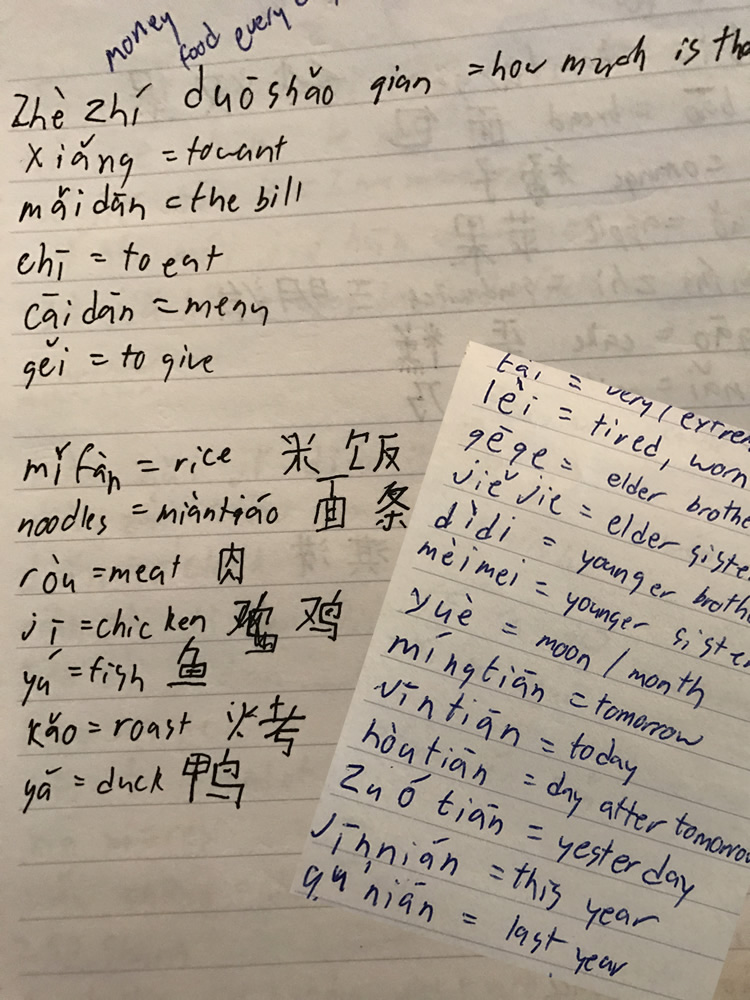 money
food every
Zhè zhí duōshǎo qian = how much is tha
xiǎng = to want
mǎidān = the bill
chī = to eat
cāidān = menu
gěi = to give
mǐfàn = rice 米饭
noodles = miàntiáo 面条
ròu = meat 肉
jī = chicken 鸡
yú = fish 鱼
kǎo = roast 烤
yā = duck 鸭
tài = very/extrem
lèi = tired, worn
gēge = elder brothe
jiějie = elder siste
dìdi = younger broth
mèimei = younger siste
yuè = moon / month
míngtiān = tomorrow
jīntiān = today
hòutiān = day after tomorrow
Zuótiān = yesterday
jīnnián = this year
qùnián = last year